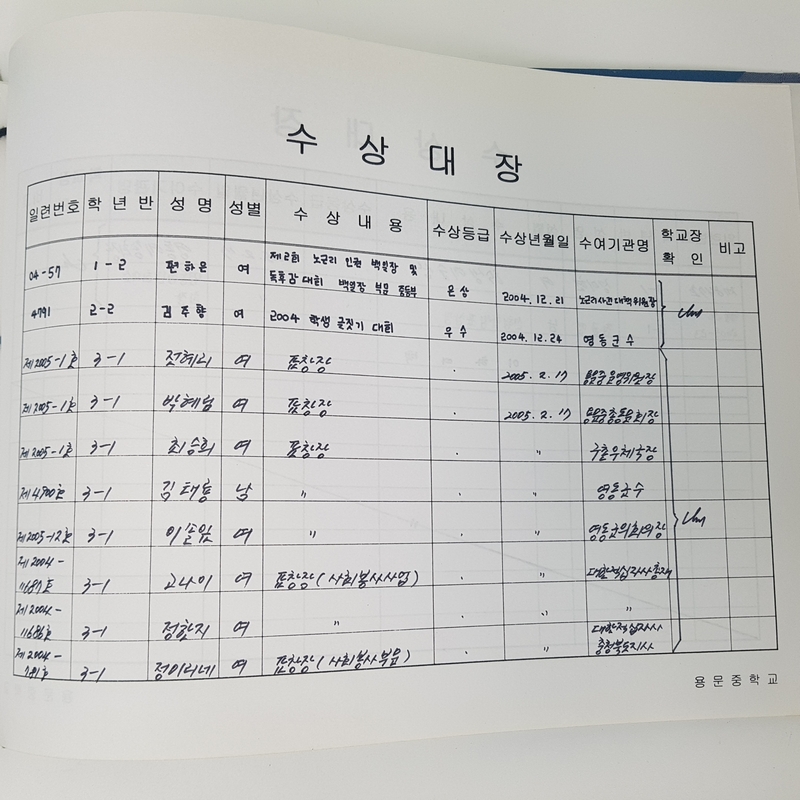 수 상 대 장
일련번호 학 년 반 성 명 성별 수 상 내 용 수상등급 수상년월일 수여기관명 학교장 확 인 비고
04-57 1-2 편하은 여 제2회 노근리 인권 백일장 및 독후감대회 백일장 부문 중등부 은상 2004.12.21 노근리사건대책위원장
4791 2-2 김주향 여 2004 학생 글짓기 대회 우수 2004.12.24 영동군수
제2005-1호 3-1 여 표창장 . 2005.2.17 용문중운영위원장
제2005-1호 3-1 여 표창장 . 2005.2.17 용문중총동문회장
제2005-1호 3-1 최승희 여 표창장 . " 우체국장
제4900호 3-1 김태용 남 " . " 영동군수
제2005-12호 3-1 이솔잎 여 " . " 영동군의회의장
제2004-11687호 3-1 고나이 여 표창장(사회봉사사업) . " 대한적십자사총재
제2004-11686호 3-1 정한지 여 " . " "
제2004-781호 3-1 정이러네 여 표창장(사회봉사부문) . " 대한적십자사 충청북도지사
용문중학교